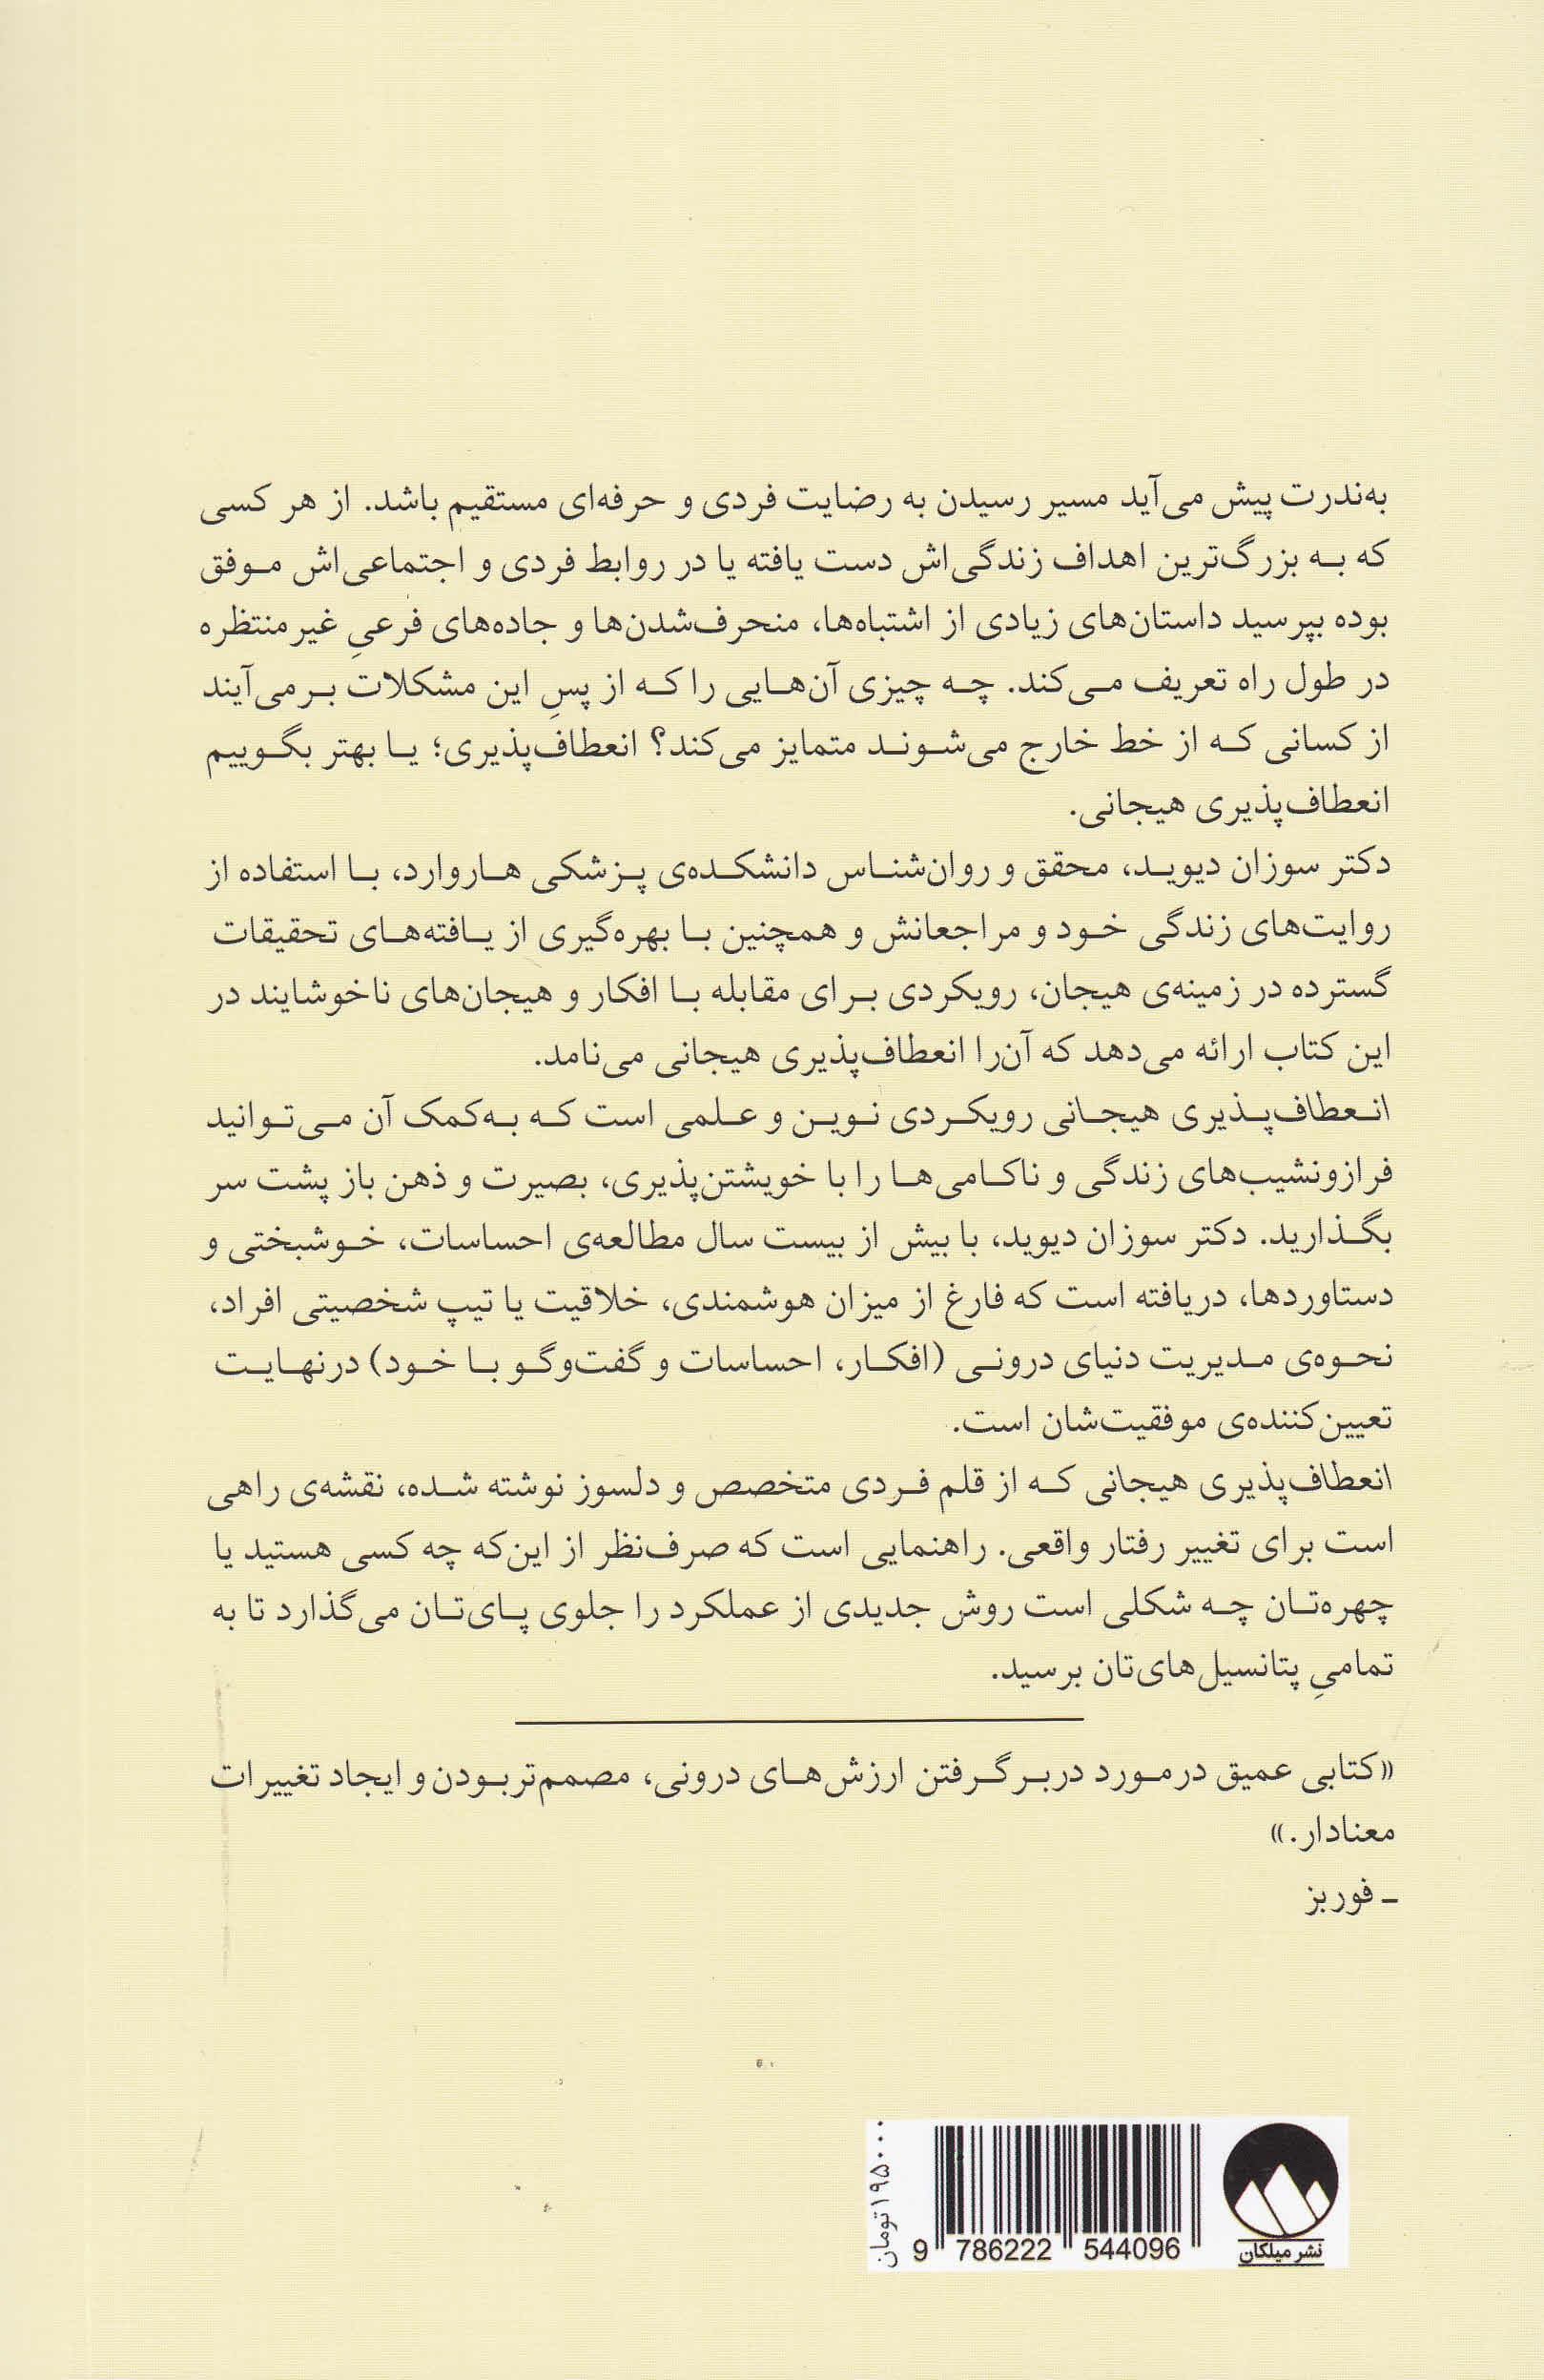 به‌ندرت پیش می‌آید مسیر رسیدن به رضایت فردی و حرفه‌ای مستقیم باشد. از هر کسی
که به بزرگ‌ترین اهداف زندگی‌اش دست یافته یا در روابط فردی و اجتماعی‌اش موفق
بوده بپرسید داستان‌های زیادی از اشتباه‌ها، منحرف‌شدن‌ها و جاده‌های فرعیِ غیرمنتظره
در طول راه تعریف می‌کند. چه چیزی آن‌هایی را که از پسِ این مشکلات برمی‌آیند
از کسانی که از خط خارج می‌شوند متمایز می‌کند؟ انعطاف‌پذیری؛ یا بهتر بگوییم
انعطاف‌پذیری هیجانی.
دکتر سوزان دیوید، محقق و روان‌شناس دانشکده‌ی پزشکی هاروارد، با استفاده از
روایت‌های زندگی خود و مراجعانش و همچنین با بهره‌گیری از یافته‌های تحقیقات
گسترده در زمینه‌ی هیجان، رویکردی برای مقابله با افکار و هیجان‌های ناخوشایند در
این کتاب ارائه می‌دهد که آن‌را انعطاف‌پذیری هیجانی می‌نامد.
انعطاف‌پذیری هیجانی رویکردی نوین و علمی است که به‌کمک آن می‌توانید
فرازونشیب‌های زندگی و ناکامی‌ها را با خویشتن‌پذیری، بصیرت و ذهن باز پشت سر
بگذارید. دکتر سوزان دیوید، با بیش از بیست سال مطالعه‌ی احساسات، خوشبختی و
دستاوردها، دریافته است که فارغ از میزان هوشمندی، خلاقیت یا تیپ شخصیتی افراد،
نحوه‌ی مدیریت دنیای درونی (افکار، احساسات و گفت‌وگو با خود) درنهایت
تعیین‌کننده‌ی موفقیت‌شان است.
انعطاف‌پذیری هیجانی که از قلم فردی متخصص و دلسوز نوشته شده، نقشه‌ی راهی
است برای تغییر رفتار واقعی. راهنمایی است که صرف‌نظر از این‌که چه کسی هستید یا
چهره‌تان چه شکلی است روش جدیدی از عملکرد را جلوی پای‌تان می‌گذارد تا به
تمامیِ پتانسیل‌های‌تان برسید.
«کتابی عمیق درمورد دربرگرفتن ارزش‌های درونی، مصمم‌تربودن و ایجاد تغییرات
معنادار.»
ـ فوربز
۱۹۵۰۰۰تومان
9 786222 544096
نشر میلکان